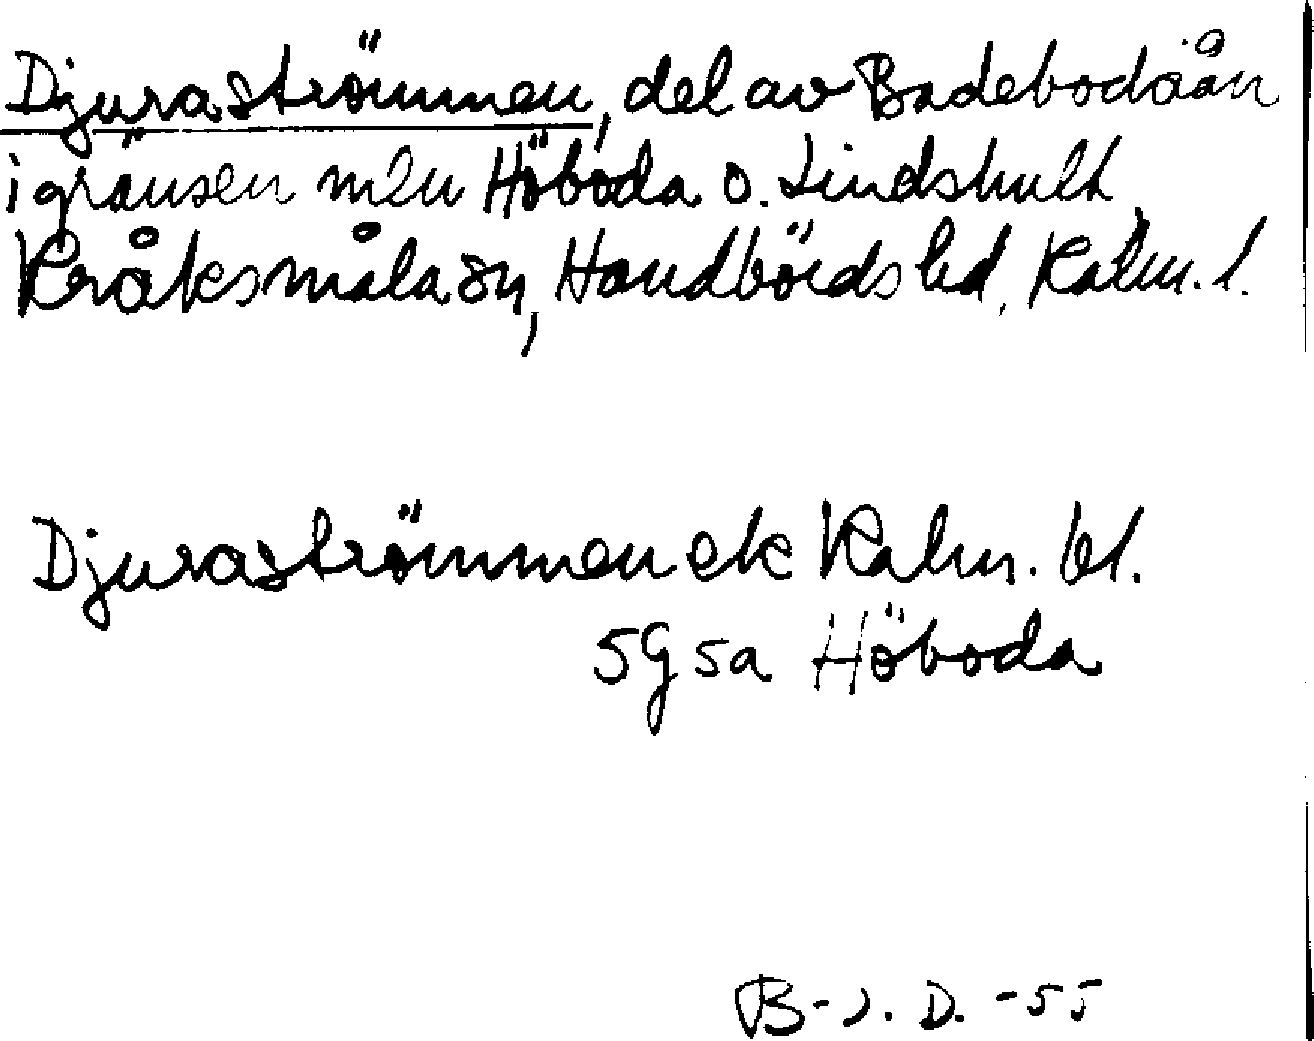 Djuraströmmen, del av Badebodaån
i gränsen mln Höboda o. Lindshult,
Kråksmåla sn, Handbörds hd, Kalm. l.
Djuraströmmen ek Kalm. bl.
5G 5a Höboda
B-J. D. -55